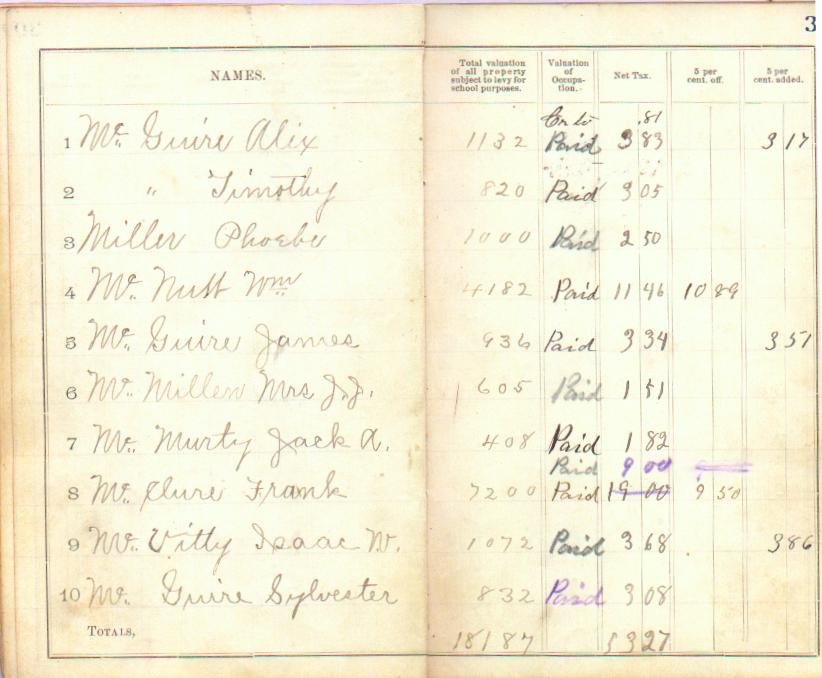 3
NAMES. Total valuation of all property subject to levy for school purposes. Valuation of Occupation. Net Tax. 5 per cent. off. 5 per cent. added.
.81
1 Mc Guire Alix 1132 Paid 3 83 3 17
2 " Timothy 820 Paid 3 05
3 Miller Phoebe 1000 Paid 2 50
4 Mc Nutt Wm 4182 Paid 11 46 10 89
5 Mc Guire James 936 Paid 3 34 3 51
6 Mc Millen Mrs J.J. 605 Paid 1 51
7 Mc Murty Jack A. 408 Paid 1 82
Paid 9 00
8 Mc Clure Frank 7200 Paid 19 00 9 50
9 Mc Vitty Isaac W. 1072 Paid 3 68 3 86
10 Mc Guire Sylvester 832 Paid 3 08
TOTALS, 18187 5327